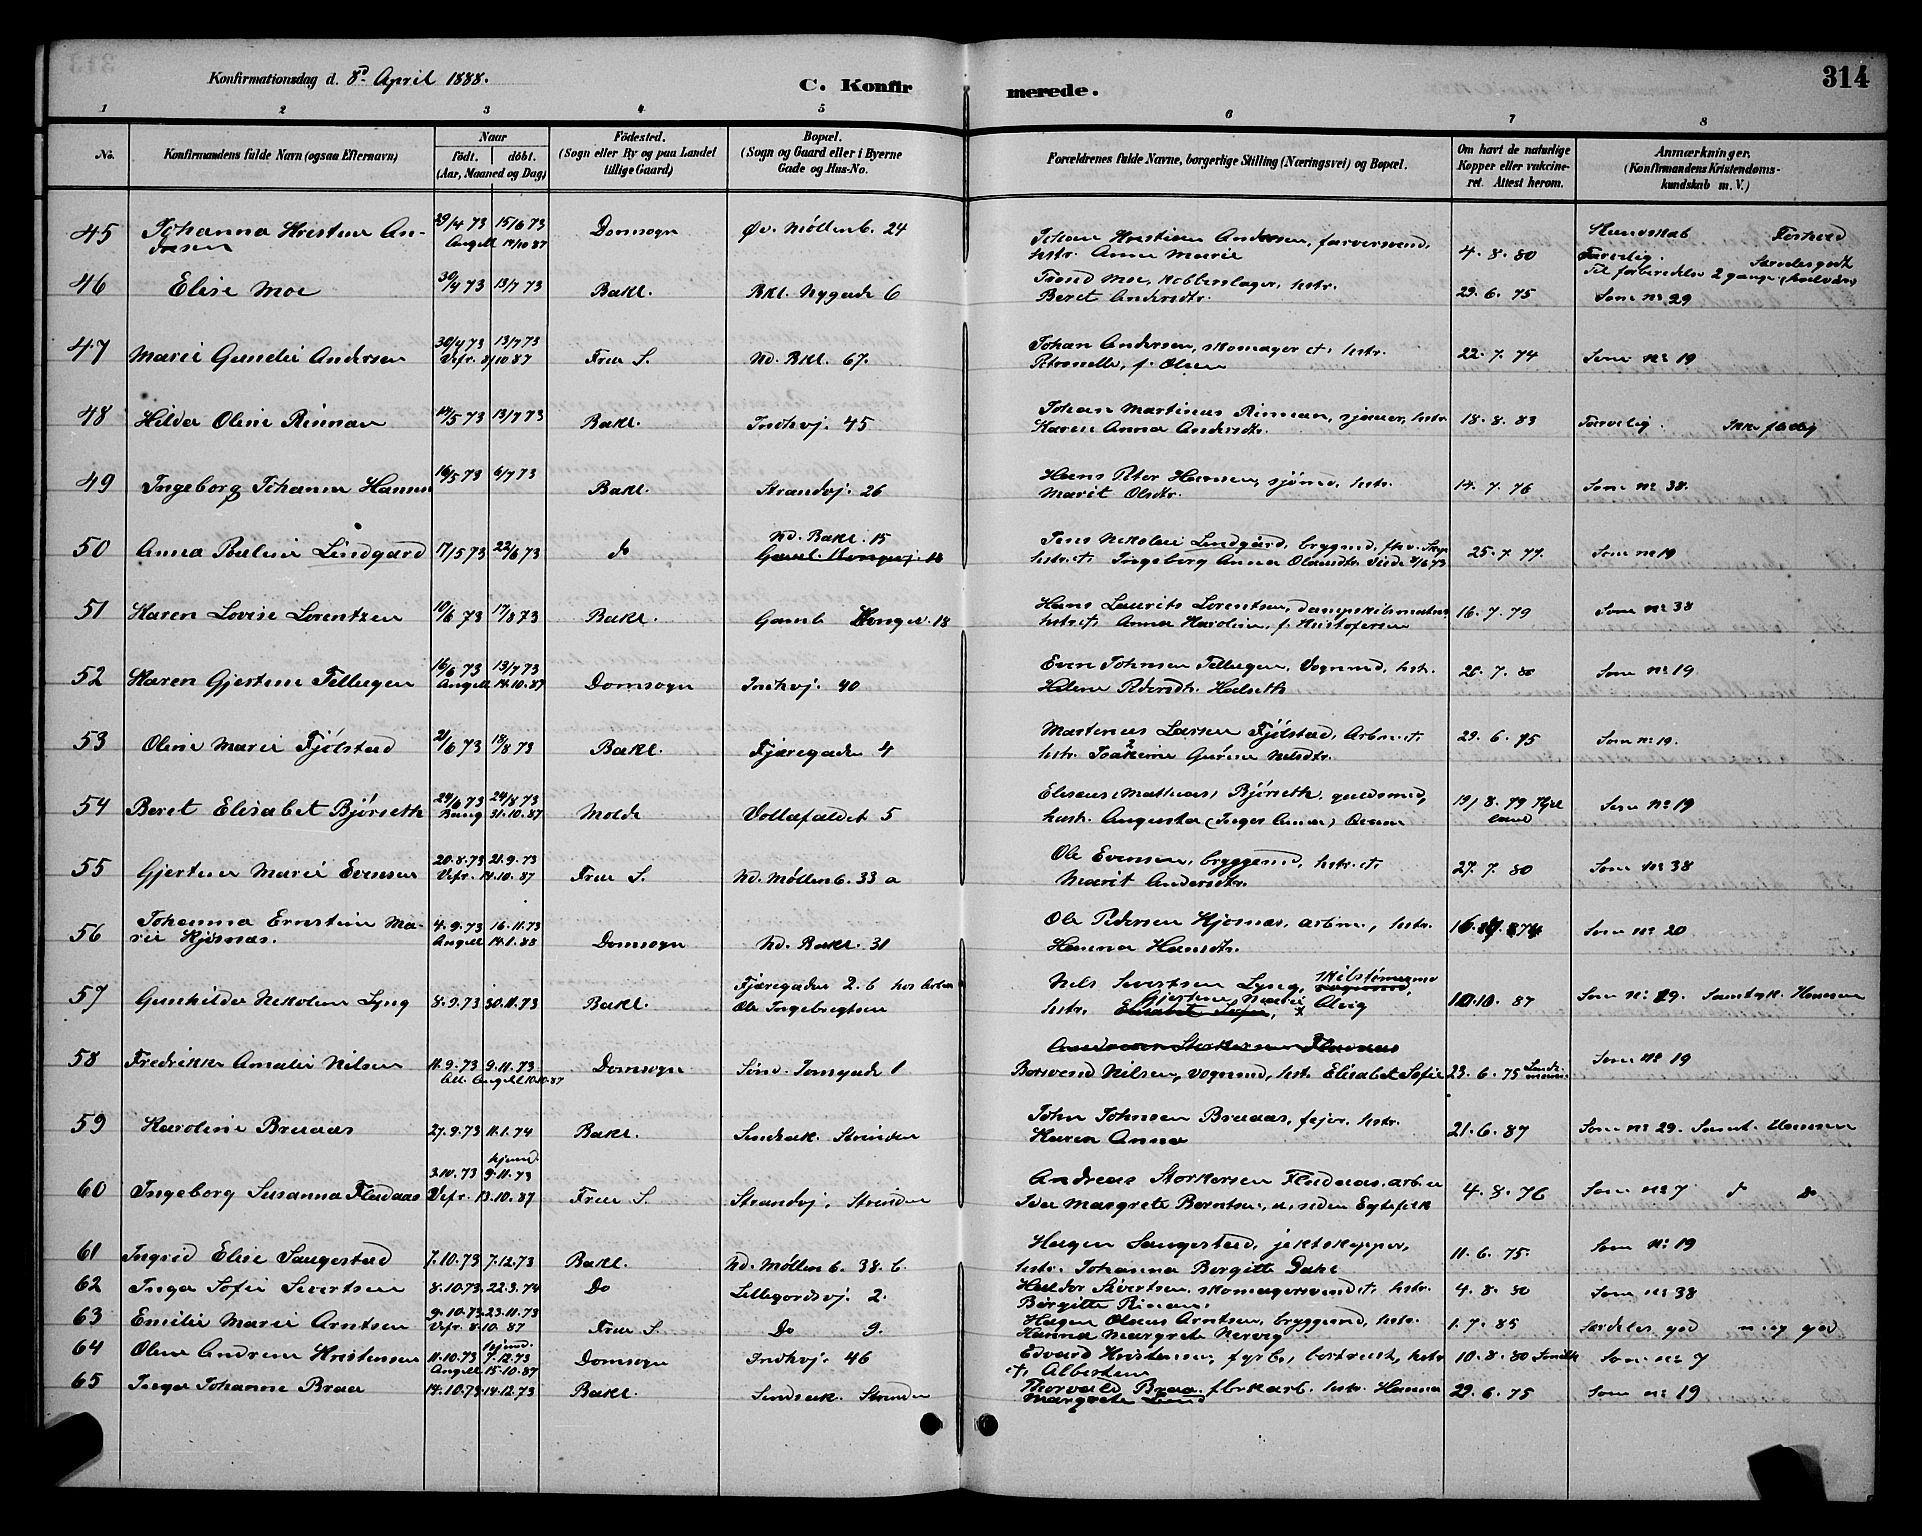 Konfirmationsdag d. 8de April 1888.
C. Konfirmerede.
314
1 2 3 4 5 6 7 8
No.
Konfirmandens fulde Navn (ogsaa Efternavn)
Naar
født. døbt.
(Aar, Maaned og Dag)
Fødested.
(Sogn eller By og paa Landet
tillige Gaard)
Bopæl.
(Sogn og Gaard eller i Byerne
Gade og Hus-No.
Forældrenes fulde Navne, borgerlige Stilling (Næringsvei) og Bopæl.
Om havt de naturlige
Kopper eller vakcine-
ret. Attest herom.
Anmærkninger,
(Konfirmandens Kristendoms-
kundskab m. V.)
45 Johanna Kristine An- 29/4 73 15/6 73 Domsogn Øv. Møllenb. 24 Johan Kristian Andersen, farversvend, 4. 8. 80 Kundskab Forhold
dersen Angell 14/10 87 hstr. Anna Marie Tarvelig. Særdeles godt
Til forberedelse 2 gange
46 Elise Moe 30/4 73 13/7 73 Bakl. Bkl. Nygade 6 Trond Moe, Kobberslager, hstr. 29. 6. 75 Som No 29
Beret Andersdtr.
47 Marie Gundie Andersen 30/4 73 13/7 73 Frue S. Nd. Bkl. 67. Johan Andersen, skomager et. hstr. 22. 7. 74 Som No 19
Vefr. 8/10 87 Petronelle, f. Olsen
48 Hilda Oline Rinnan 14/5 73 13/7 73 Bakl. Indhvj. 45 Johan Martinus Rinnan, sjauer, hstr. 18. 8. 83 Tarvelig. Ikke flittig
Karen Anna Andersdtr.
49 Ingeborg Johanne Hansen 16/5 73 6/7 73 Bakl. Strandvj. 26 Hans Peter Hansen, sjømd, hstr. 14. 7. 76 Som No 38.
Marit Olsdtr.
50 Anna Pauline Lindgård 17/5 73 22/6 73 do Nd. Bakl. 15 Jens Nikolai Lindgård, brygmd, 25. 7. 77. Som No 19
hstr. et. Ingeborg Anna Olausdtr.
51 Karen Lovise Lorentzen 10/6 73 17/8 73 Bakl. Gamb. Kongev. 18 Hans Laurits Lorentsen, dampskibsmatros 16. 7. 79 Som No 38
hstr. et. Anna Karoline, f. Kristofersen
52 Karen Gjertine Tellugen 16/6 73 13/7 73 Domsogn Indhvj. 40 Even Johnsen Tellugen, Vognmd, hstr. 26. 7. 80 Som No 19.
Angell 14.10.87 Helene Pedersdtr. Halseth
53 Oline Marie Fjølstad 21/6 73 18/8 73 Bakl. Fjæregaden 4 Martinus Larsen Fjølstad, Arbm. et. 29. 6. 75 Som No 19.
hstr. Isakine Gurine Nilsdtr.
54 Beret Elisabet Bjørseth 24/6 73 24/8 73 Molde Vollafaldet 5 Eliseus (Mathias) Bjørseth, guldsmed, 19/ 8. 79 Som No 19
Bang 31.10.87 hstr. Augusta (Inger Anna)
55 Gjertine Marie Evensen 20.8.73 21.9.73 Frue S. Nd. Møllenb. 33 a Ole Evensen, bryggemd, hstr. et. 27. 7. 80 Som No 38
Vefr. 14.10.87 Marit Andersdtr.
56 Johanna Ernstine Ma- 4.9.73 16.11.73 Domsogn Nd. Bakl. 31 Ole Pedersen Kjøsnæs, arbm., hstr. Som No 20
rie Kjøsnæs. Angell 14.1.88 Hanna Hansdtr.
57 Gunhilda Nikoline Lyng 8.9.73 30.11.73 Bakl. Fjæregaden 2. b hos Ole Ingebregtsen Nils Sivertsen Lyng, 10. 10. 87 Som No 29. Samtyk. Hansen
hstr. Gjertine Marie Olvig
58 Fredrikke Amalie Nilsen 11.9.73 9.11.73 Domsogn Sønd. Tomgade 1 Som No 19
Att. Angell 10.10.87 Borsvend Nilsen, vognmd, hstr. Elisabet Sofie 23. 6. 75
59 Karoline Braaas 27.9.73 11.1.74 Bakl. Strinden John Johnsen Braaas, fejer, hstr. 21. 6. 87 Som No 29. Samt. Hansen
Karen Anna
60 Ingeborg Susanna Fladaas 3.10.73 hjemd. 9.11.73 Frue S. Strandvj. Strinden Andreas Storkersen Fladaas, arb. et 4. 8. 76 Som No 7 d do
Vefr. 13.10.87 Ida Margrete Berntsen, u., siden Egtefolk
61 Ingrid Elise Saugestad 7.10.73 7.12.73 Bakl. Nd. Møllenb. 38. b Hagen Saugestad, jektskipper, 11. 6. 75. Som No 19
hstr. Johanna Bergitte Dahl
62 Inga Sofie Sivertsen 8.10.73 22.3.74 Do Lillegårdsvj. 2. Haldor Sivertsen, skomagersvend et. hstr. 4. 8. 80 Som No 38
Birgitte Rinnan.
63 Emilie Marie Arntsen 9.10.73 23.11.73 Frue S. Do 9. Hagen Olaus Arntsen, bryggemd, hstr. 1. 7. 85 Særdeles god meg. god
Vefr. 8.10.87 Hanna Margrete Nervig
64 Oline Andrine Kristensen 11.10.73 hjemd. 7.12.73 Domsogn Indhvj. 46 Edvard Kristensen, fyrb., hstr. 10. 8. 80 Som No 7
Angell 15.10.87 et. Albertine
65 Inga Johanne Braa 14.10.73 14.12.73 Bakl. Strinden Thorvald Braa. fbrkarb. hstr. Hanna 29. 6. 75 Som No 19
Margrete Lund